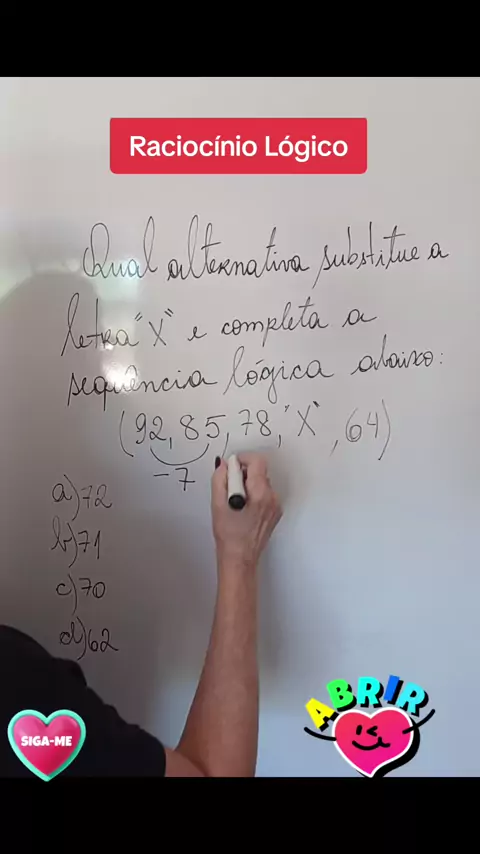 Raciocínio Lógico
Qual alternativa substitue a
letra "X" e completa a
sequência lógica abaixo:
(92, 85, 78, "X", 64)
-7
a) 72
b) 71
c) 70
d) 62
ABRIR
SIGA-ME